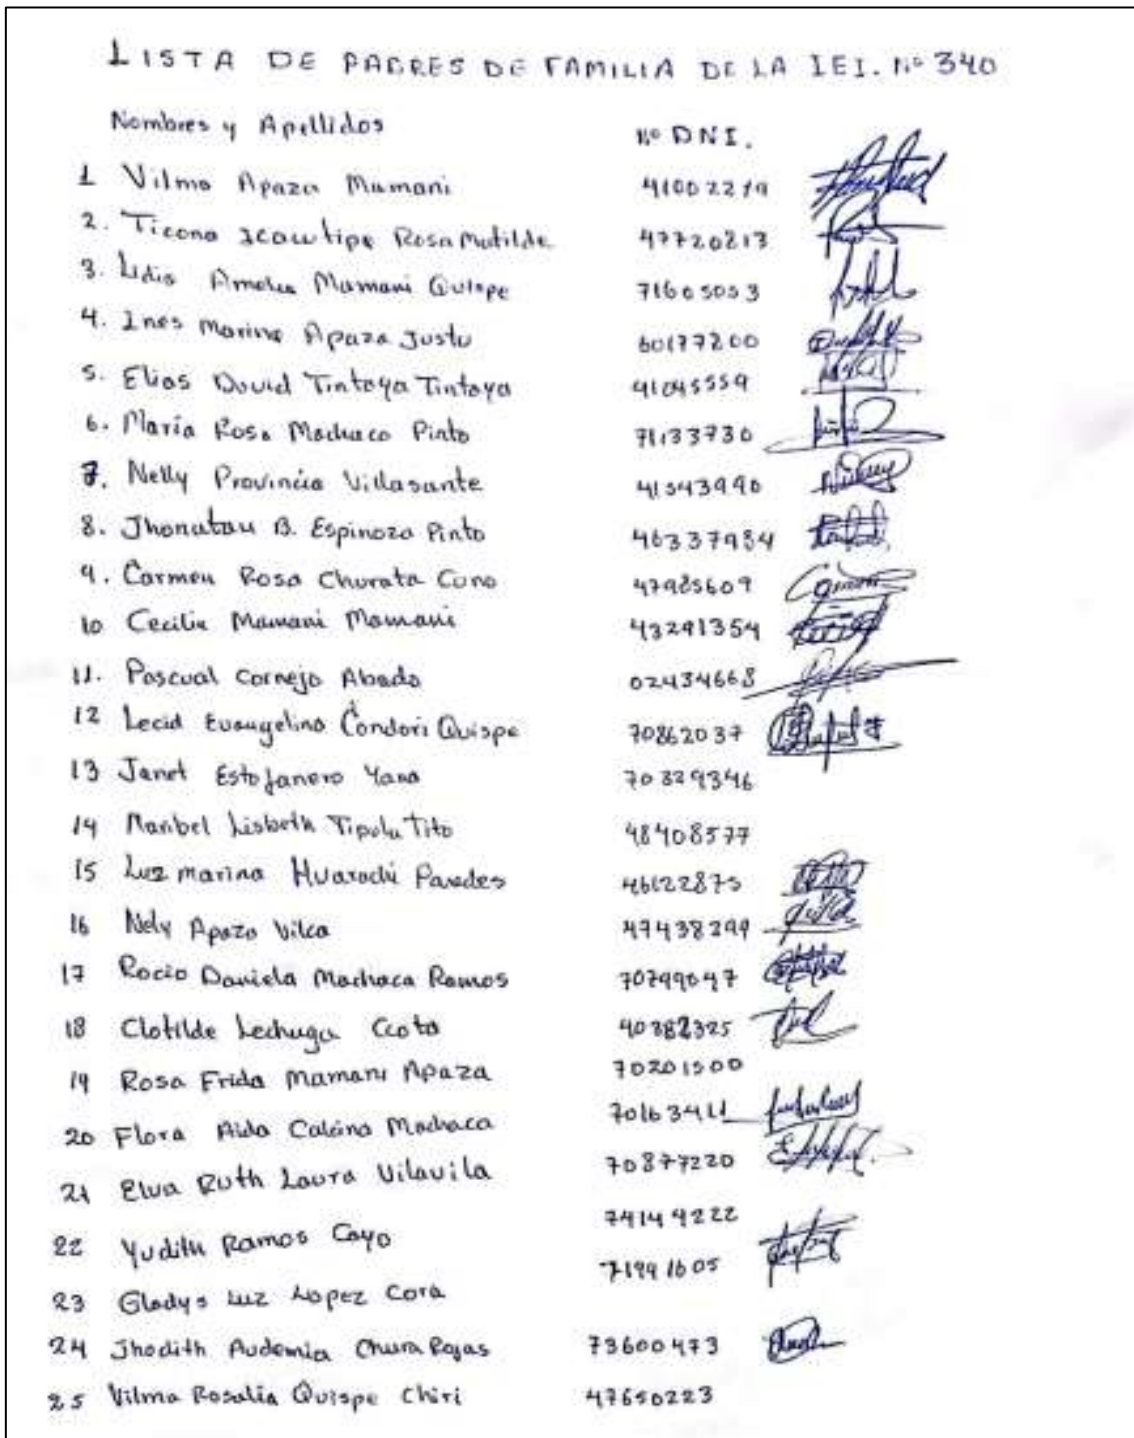 LISTA DE PADRES DE FAMILIA DE LA IEI. Nº 340
Nombres y Apellidos Nº DNI.
1 Vilma Apaza Mamani 41002219
2. Ticona Rosa Matilde 47720213
3. Lidia Amelia Mamani Quispe 71605053
4. Ines Marina Apaza Justo 60177200
5. Elias David Tintaya Tintaya 41045559
6. María Rosa Machaca Pinto 71133730
7. Nelly Provincia Villasante 41543990
8. Jhonatan B. Espinoza Pinto 46337984
9. Carmen Rosa Churata Cuno 47985609
10 Cecilia Mamani Mamani 43291354
11. Pascual Cornejo Abado 02434668
12 Lecid Evangelina Condori Quispe 70862037
13 Janet Estofanero Yana 70329346
14 Maribel Lisbeth Tipula Tito 48408577
15 Luz marina Huarachi Paredes 46122875
16 Nely Apaza Vilca 47438299
17 Rocio Daniela Machaca Ramos 70799047
18 Clotilde Lechuga Ccota 40382325
19 Rosa Frida Mamani Apaza 70201500
20 Flora Aida Calcina Machaca 70163411
21 Elva Ruth Laura Vilavila 70877220
22 Yudith Ramos Cayo 74144222
23 Gladys Luz Lopez Cora 71991605
24 Jhodith Audemia Chura Rojas 73600473
25 Vilma Rosalia Quispe Chiri 47650223